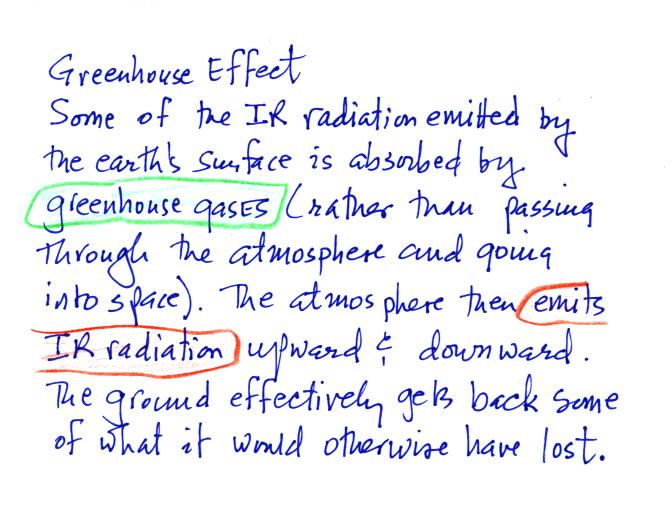 Greenhouse Effect
Some of the IR radiation emitted by
the earth's surface is absorbed by
greenhouse gases (rather than passing
through the atmosphere and going
into space). The atmosphere then emits
IR radiation upward & downward.
The ground effectively gets back some
of what it would otherwise have lost.